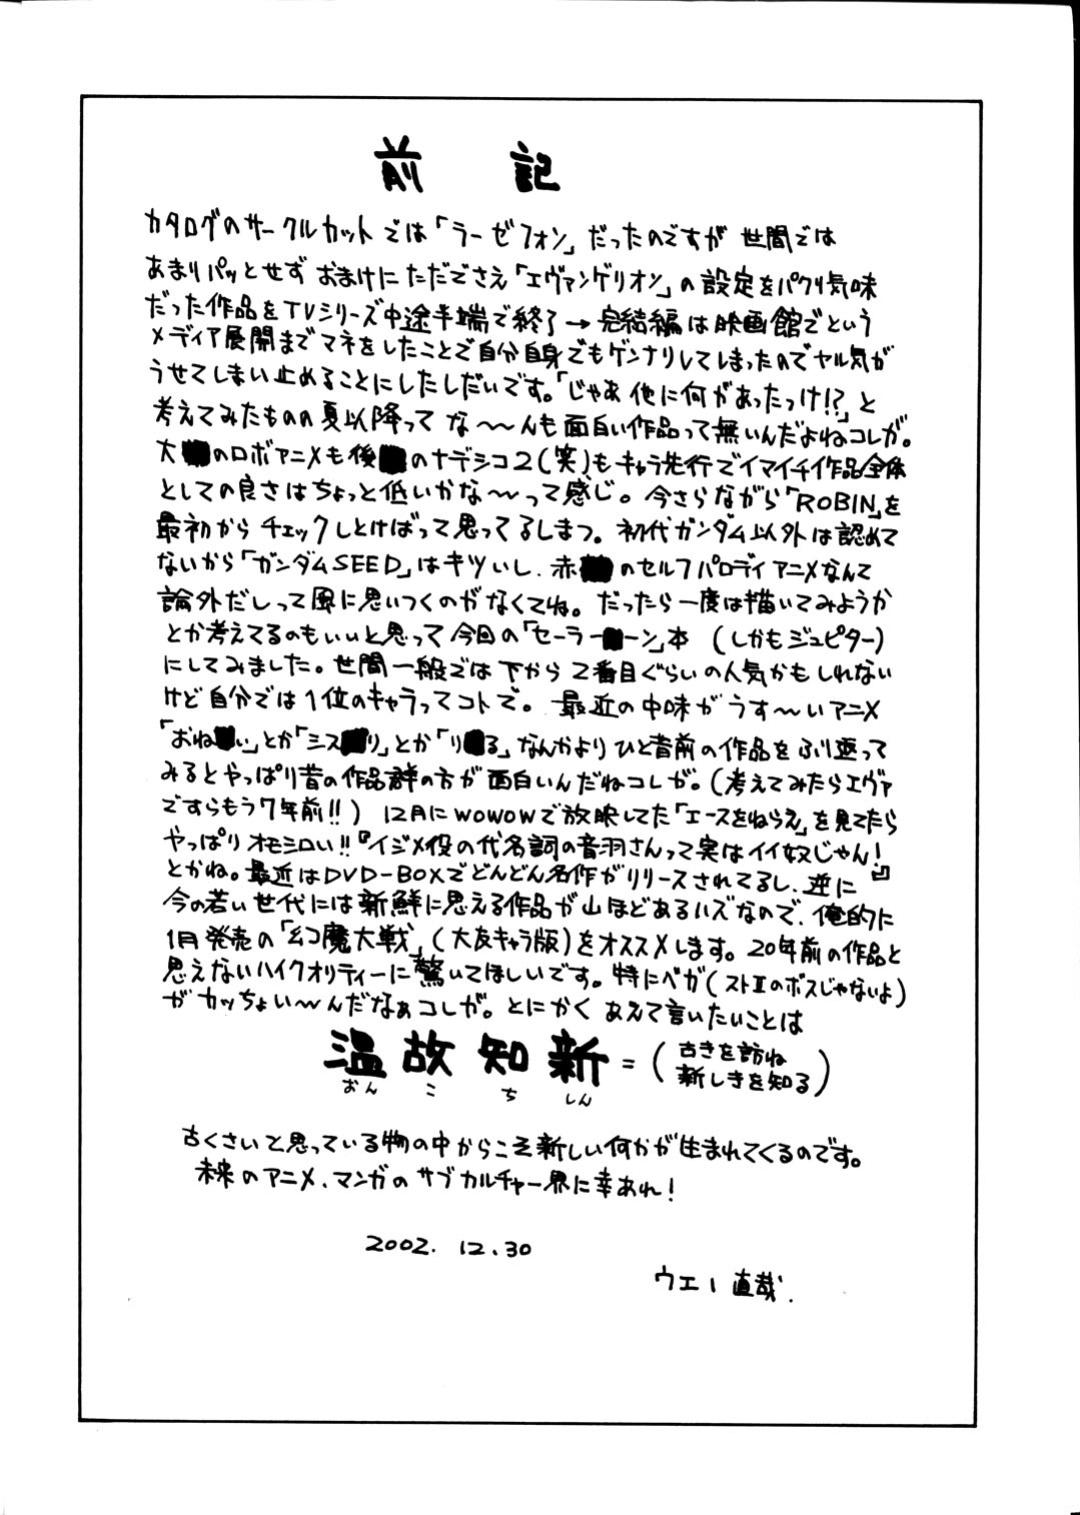 前記
カタログのサークルカットでは「ラーゼフォン」だったのですが世間では
あまりパッとせずおまけにただでさえ「エヴァンゲリオン」の設定をパクリ気味
だった作品をTVシリーズ中途半端で終了→完結編は映画館でという
メディア展開までマネをしたことで自分自身でもゲンナリしてしまったのでヤル気が
うせてしまい止めることにしたしだいです。「じゃあ他に何があったっけ!?」と
考えてみたものの夏以降ってな〜〜んも面白い作品って無いんだよねコレが。
大のロボアニメも後のナデシコ2(笑)もキャラ先行でイマイチ作品全体
としての良さはちょっと低いかな〜〜って感じ。今さらながら「ROBIN」を
最初からチェックしとけばって思ってるしまつ。初代ガンダム以外は認めて
ないから「ガンダムSEED」はキツいし、赤のセルフパロディアニメなんて
論外だしって風に思いつくのがなくてね。だったら一度は描いてみようか
とか考えてるのもいいと思って今回の「セーラーーン」本(しかもジュピター)
にしてみました。世間一般では下から2番目ぐらいの人気かもしれない
けど自分では1位のキャラってコトで。最近の中味がうす〜いアニメ
「おねい」とか「シスリ」とか「りる」なんかよりひと昔前の作品をふり返って
みるとやっぱり昔の作品群の方が面白いんだねコレが。(考えてみたらエヴァ
ですらもう7年前!!) 12月にWOWOWで放映してた「エースをねらえ」を見てたら
やっぱりオモシロい!!『イジメ役の代名詞の音羽さんって実はイイ奴じゃん!』
とかね。最近はDVD-BOXでどんどん名作がリリースされてるし、逆に
今の若い世代には新鮮に思える作品が山ほどあるハズなので、俺的に
1月発売の「幻魔大戦」(大友キャラ版)をオススメします。20年前の作品と
思えないハイクオリティーに驚いてほしいです。特にベガ(ストⅡのボスじゃないよ)
がカッちょい〜んだなぁコレが。とにかくあえて言いたいことは
温故知新=(古きを訪ね
新しきを知る)
おん こ ち しん
古くさいと思っている物の中からこそ新しい何かが生まれてくるのです。
未来のアニメ、マンガのサブカルチャー界に幸あれ!
2002.12.30
ウエー直哉.